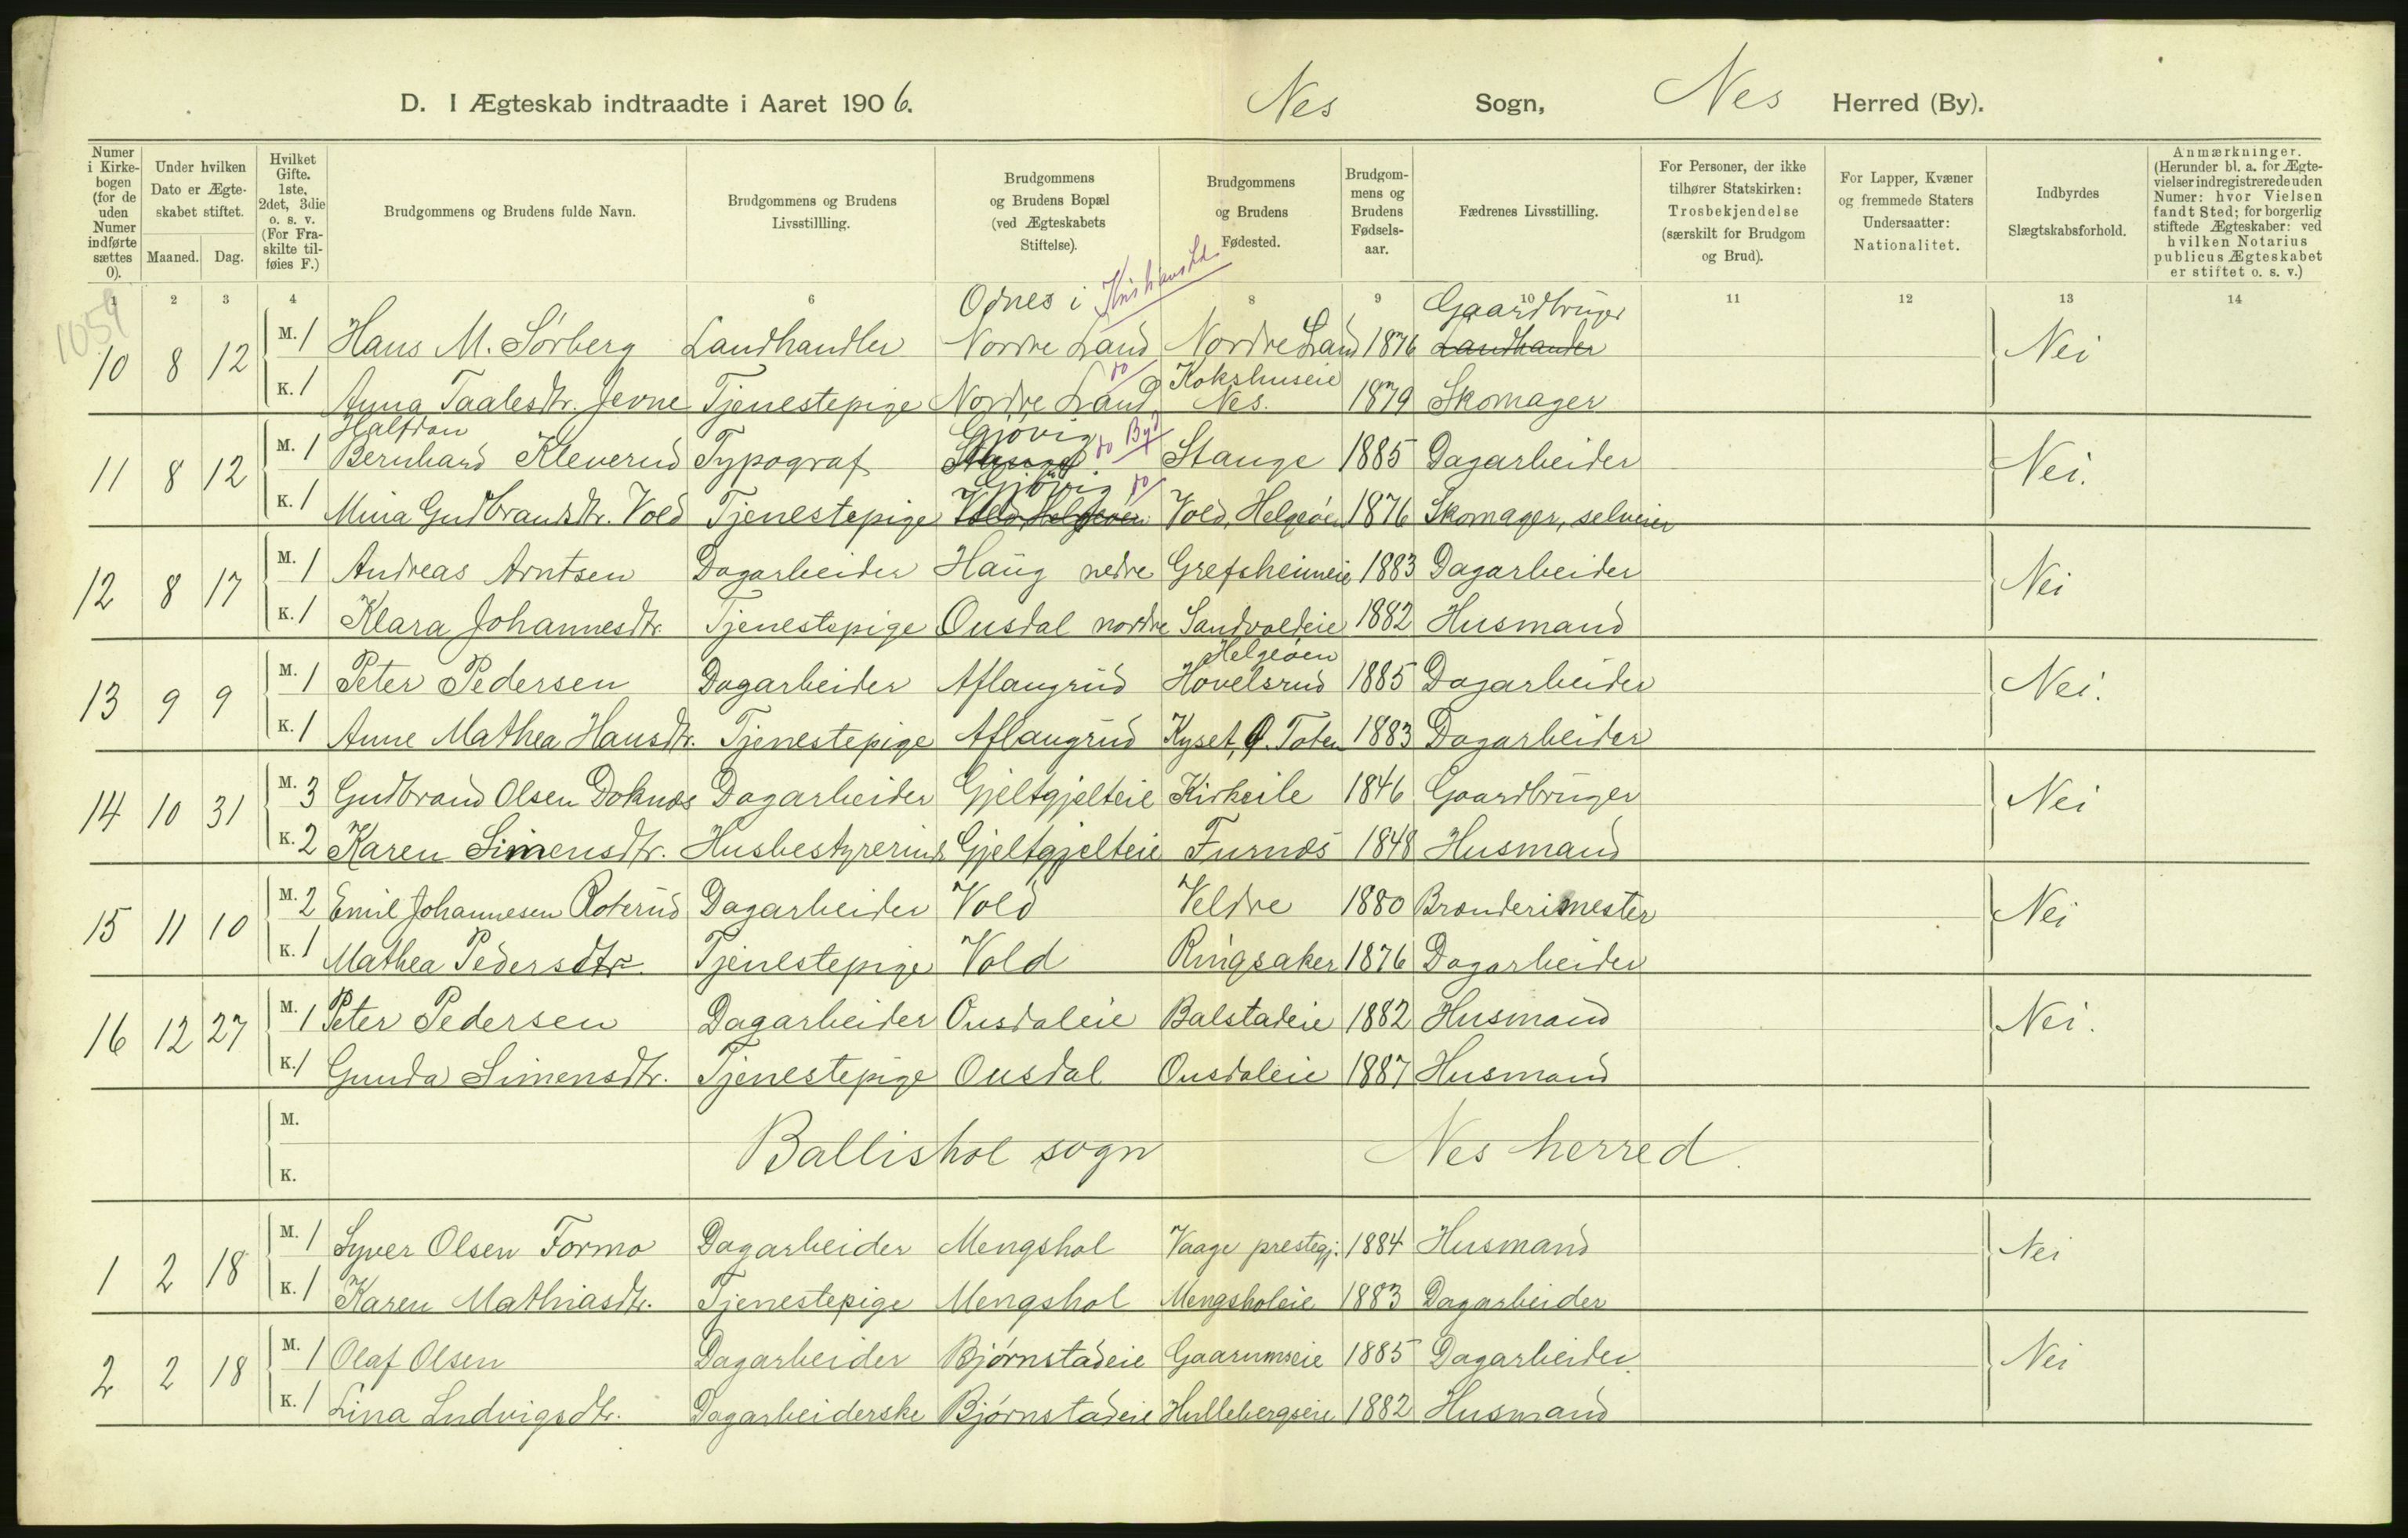 D. I Ægteskab indtraadte i Aaret 1906. Nes Sogn, Nes Herred (By).
Numer i Kirkebogen (for de uden Numer indførte sættes 0).
Under hvilken Dato er Ægteskabet stiftet. Maaned. Dag.
Hvilket Gifte. 1ste, 2det, 3die o. s. v. (For Fraskilte tilføies F.)
Brudgommens og Brudens fulde Navn.
Brudgommens og Brudens Livsstillling.
Brudgommens og Brudens Bopæl (ved Ægteskabets Stiftelse).
Brudgommens og Brudens Fødested.
Brudgommens og Brudens Fødselsaar.
Fædrenes Livsstilling.
For Personer, der ikke tilhører Statskirken: Trosbekjendelse (særskilt for Brudgom og Brud).
For Lapper, Kvæner og fremmede Staters Undersaatter: Nationalitet.
Indbyrdes Slægtskabsforhold.
Anmærkninger. (Herunder bl. a. for Ægtevielser indregistrerede uden Numer: hvor Vielsen fandt Sted; for borgerlig stiftede Ægteskaber: ved hvilken Notarius publicus Ægteskabet er stiftet o. s. v.)
1 2 3 4 6 8 9 10 11 12 13 14
1059
Odnes i Kristiansld. Gaardbruger
10 8 12 M. 1 Hans M. Sørberg Landhandler Nordre Land Nordre Land 1876 Landhandler Nei
do Kokshuseie
K. 1 Anna Taalesdtr. Jevne Tjenestepige Nordre Land Nes. 1879 Skomager
Halfdan Gjøvig do Byd
11 8 12 M. 1 Bernhard Kleverud Typograf Stange Stange 1885 Dagarbeider Nei.
Gjøvig do
K. 1 Mina Gudbrandsdtr. Vold Tjenestepige Vold, Helgeøen Vold, Helgeøen 1876 Skomager, selveier
12 8 17 M. 1 Andreas Arntsen Dagarbeider Haug nedre Grefsheimeie 1883 Dagarbeider Nei
K. 1 Klara Johannesdtr. Tjenestepige Ousdal nordre Sandvoldeie 1882 Husmand
Helgeøen
13 9 9 M. 1 Peter Pedersen Dagarbeider Aflangrud Hovelsrud 1885 Dagarbeider Nei.
K. 1 Anne Mathea Hansdtr. Tjenestepige Aflangrud Kyset, Ø. Toten 1883 Dagarbeider
14 10 31 M. 3 Gudbrand Olsen Doknæs Dagarbeider Gjeltgjelteie Kirkeile 1846 Gaardbruger Nei
K. 2 Karen Simensdtr. Husbestyrerinde Gjeltgjelteie Furnæs 1848 Husmand
15 11 10 M. 2 Emil Johannesen Roterud Dagarbeider Vold Veldre 1880 Brænderimester Nei
K. 1 Mathea Pedersdtr. Tjenestepige Vold Ringsaker 1876 Dagarbeider
16 12 27 M. 1 Peter Pedersen Dagarbeider Ousdaleie Balstadeie 1882 Husmand Nei.
K. 1 Gunda Simensdtr. Tjenestepige Ousdal Ousdaleie 1887 Husmand
M.
Ballishol sogn Nes herred.
K.
1 2 18 M. 1 Syver Olsen Formo Dagarbeider Mengshol Vaage prestegj. 1884 Husmand Nei
K. 1 Karen Mathiasdtr. Tjenestepige Mengshol Mengsholeie 1883 Dagarbeider
2 2 18 M. 1 Olaf Olsen Dagarbeider Bjørnstadeie Gaarumseie 1885 Dagarbeider Nei
K. 1 Lina Ludvigsdtr. Dagarbeiderske Bjørnstadeie Hullebergseie 1882 Husmand